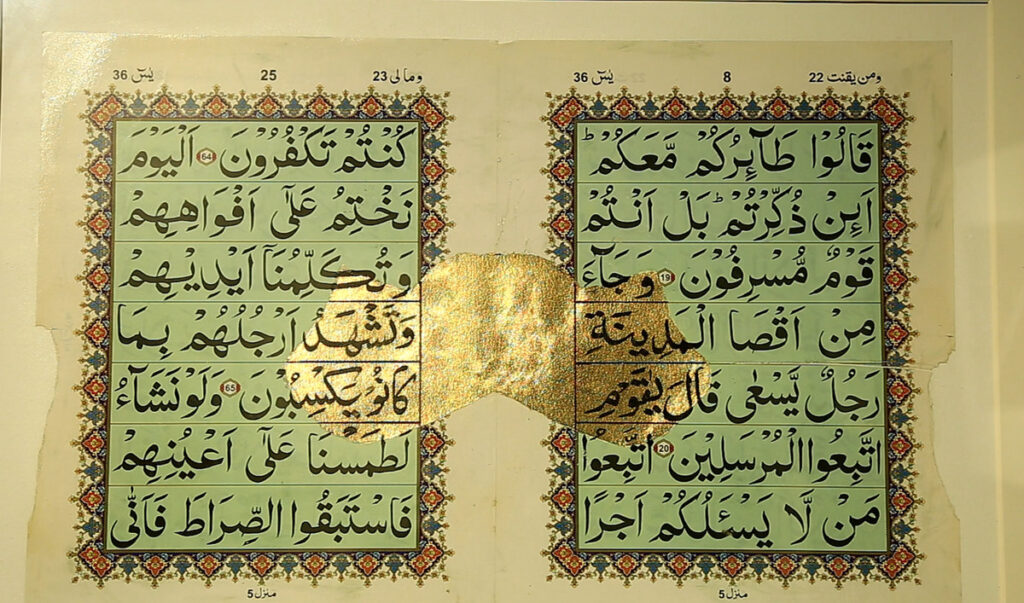 ومن يقنت 22
8
يٰسٓ 36
قَالُوْا طَآئِرُكُمْ مَّعَكُمْ ؕ
اَئِنْ ذُكِّرْتُمْ ؕ بَلْ اَنْتُمْ
قَوْمٌ مُّسْرِفُوْنَ 19 وَ جَآءَ
مِنْ اَقْصَا الْمَدِيْنَةِ
رَجُلٌ يَّسْعٰى قَالَ يٰقَوْمِ
اتَّبِعُوا الْمُرْسَلِيْنَ 20 اتَّبِعُوْا
مَنْ لَّا يَسْـَٔلُكُمْ اَجْرًا
منزل 5
ومالی 23
25
يٰسٓ 36
كُنْتُمْ تَكْفُرُوْنَ 64 اَلْيَوْمَ
نَخْتِمُ عَلٰٓى اَفْوَاهِهِمْ
وَ تُكَلِّمُنَاۤ اَيْدِيْهِمْ
وَ تَشْهَدُ اَرْجُلُهُمْ بِمَا
كَانُوْا يَكْسِبُوْنَ 65 وَ لَوْ نَشَآءُ
لَطَمَسْنَا عَلٰٓى اَعْيُنِهِمْ
فَاسْتَبَقُوا الصِّرَاطَ فَاَنّٰى
منزل 5